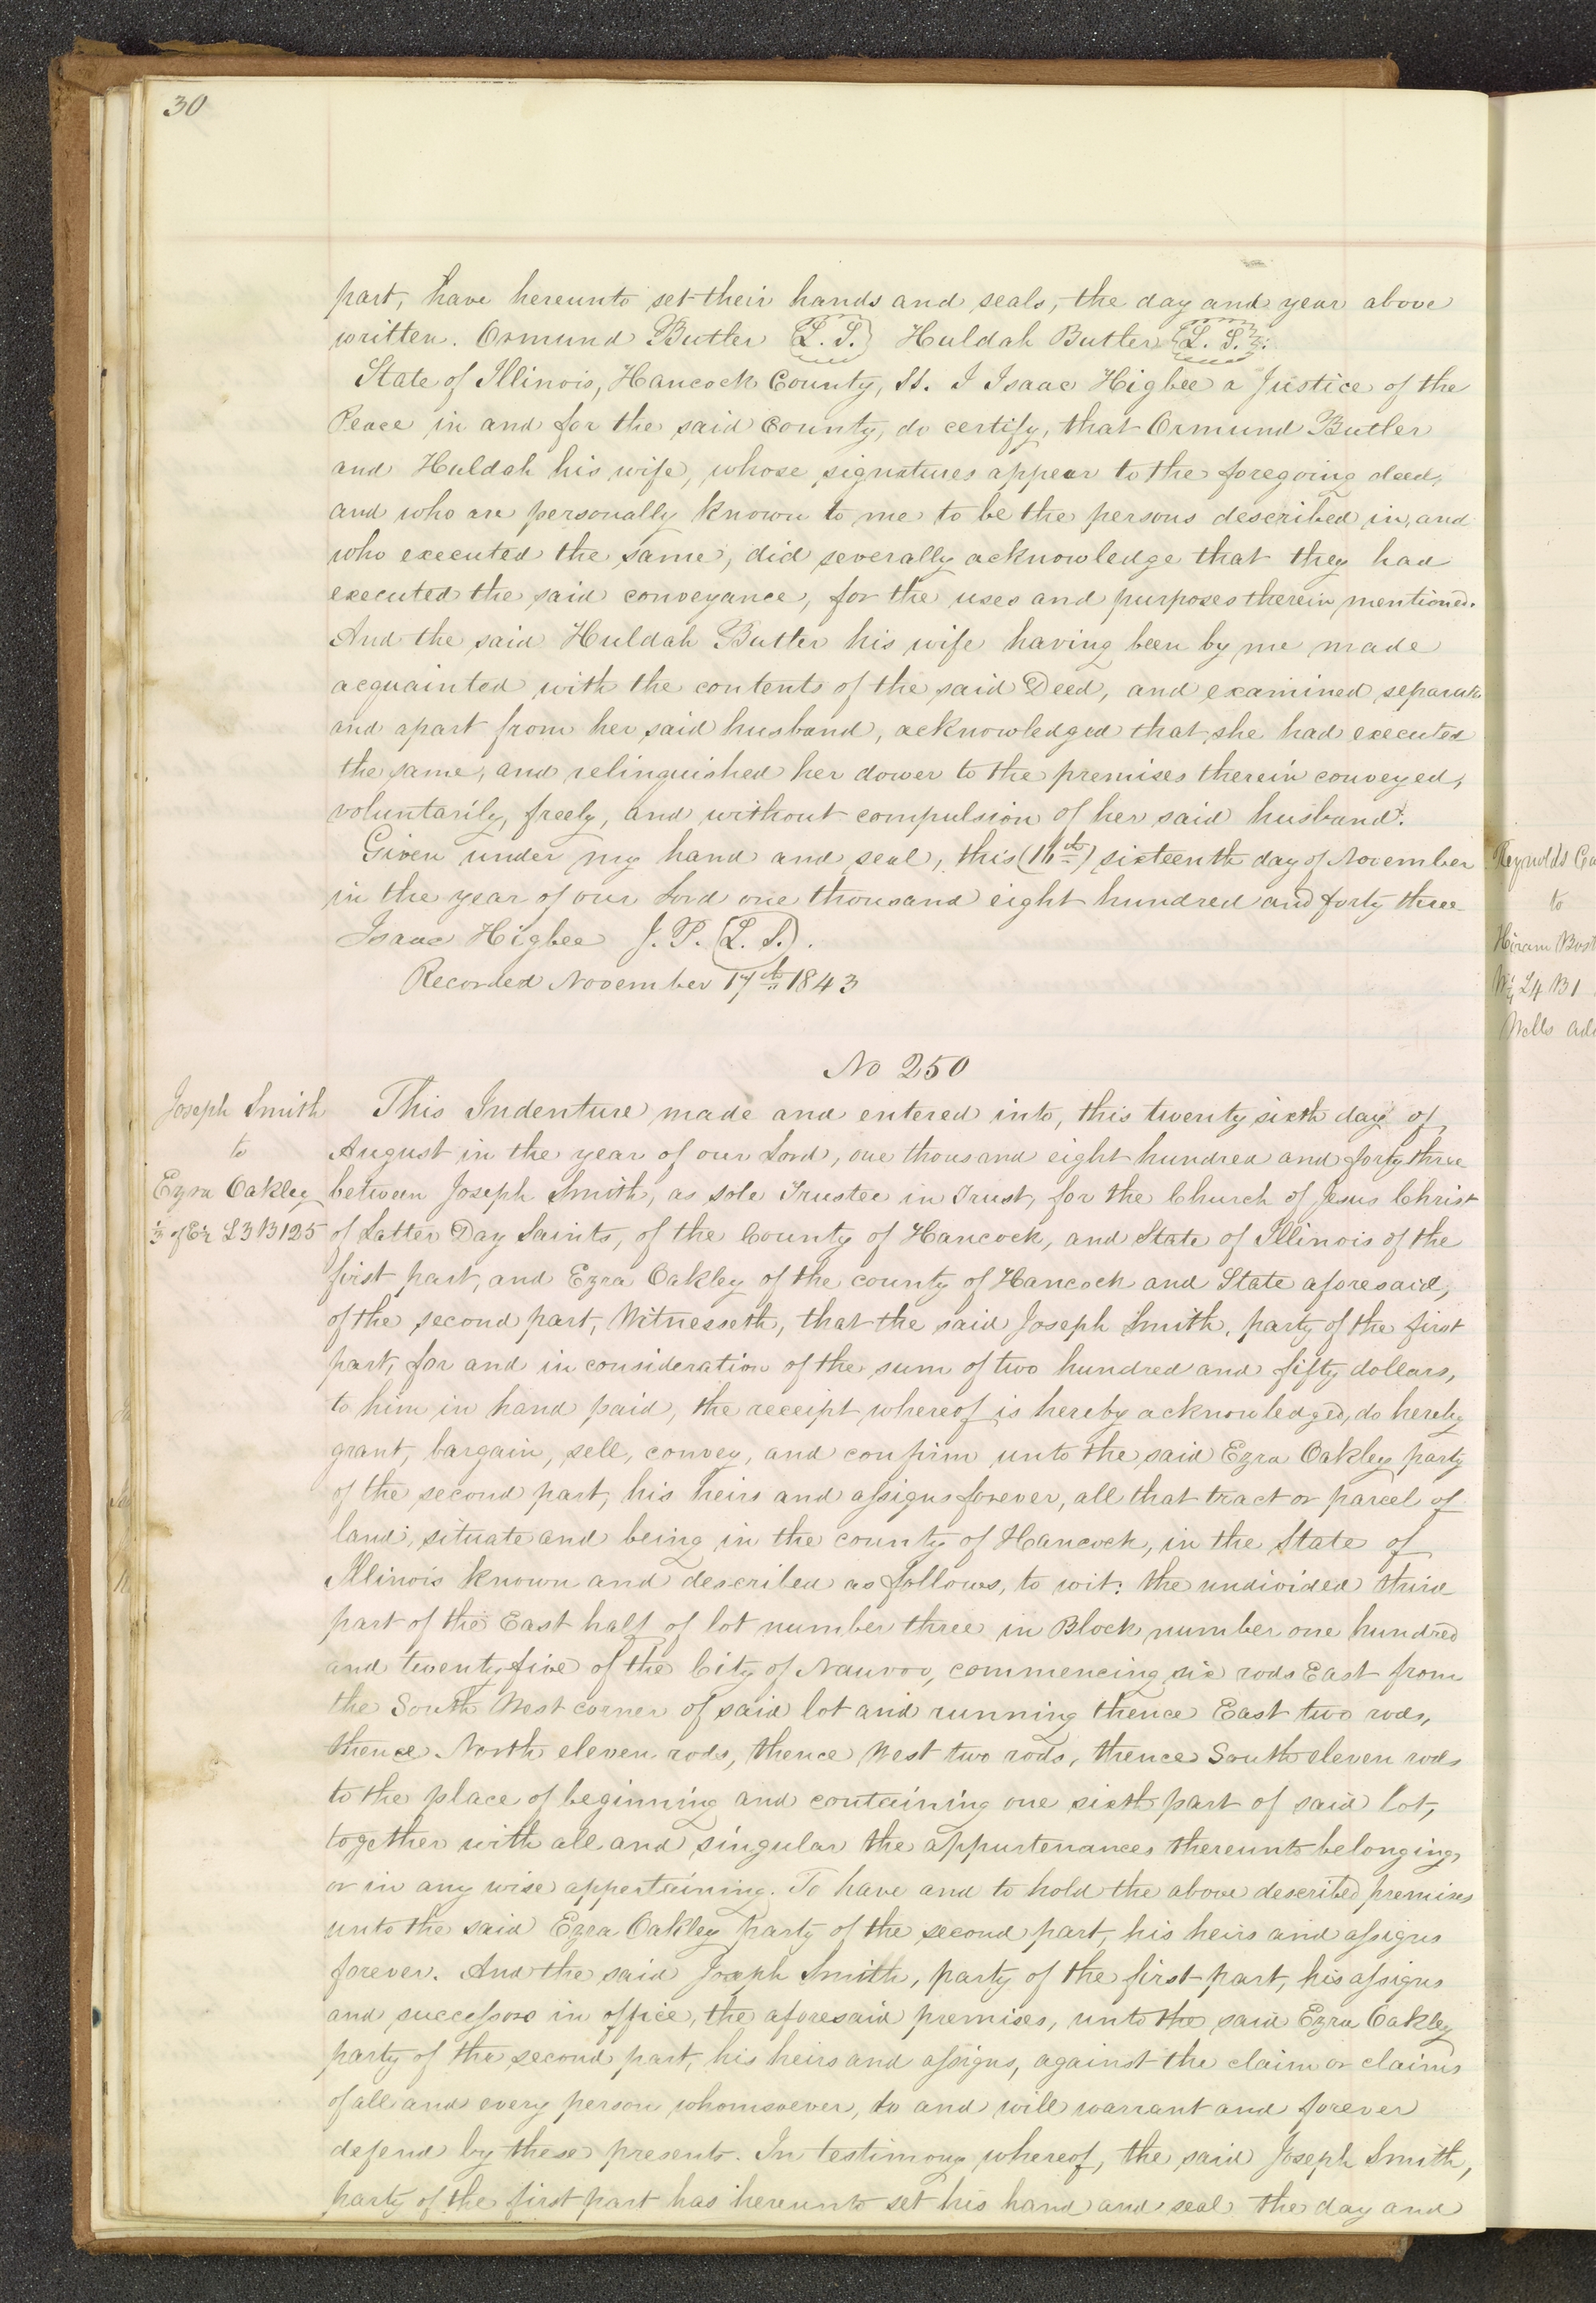 30
part, have hereunto set their hands and seals, the day and year above
written. Ormund Butler (L. S.) Huldah Butler (L. S.)
State of Illinois, Hancock County, SS. I Isaac Higbee a Justice of the
Peace in and for the said County, do certify, that Ormund Butler
and Huldah his wife, whose signatures appear to the foregoing deed,
and who are personally known to me to be the persons described in, and
who executed the same, did severally acknowledge that they had
executed the said conveyance, for the uses and purposes therein mentioned.
And the said Huldah Butler his wife having been by me made
acquainted with the contents of the said Deed, and examined separate
and apart from her said husband, acknowledged that she had executed
the same, and relinquished her dower to the premises therein conveyed,
voluntarily, freely, and without compulsion of her said husband.
Given under my hand and seal, this (16th) sixteenth day of November
in the year of our Lord one thousand eight hundred and forty three
Isaac Higbee J. P. (L. S.).
Recorded November 17th 1843
No 250
Joseph Smith
to
Ezra Oakley
1/3 of E 1/2 L 3 B 125
This Indenture made and entered into, this twenty sixth day of
August in the year of our Lord, one thousand eight hundred and forty three
between Joseph Smith, as sole Trustee in Trust, for the Church of Jesus Christ
of Latter Day Saints, of the County of Hancock, and State of Illinois of the
first part, and Ezra Oakley of the county of Hancock and State aforesaid,
of the second part, Witnesseth, that the said Joseph Smith, party of the first
part, for and in consideration of the sum of two hundred and fifty dollars,
to him in hand paid, the receipt whereof is hereby acknowledged, do hereby
grant, bargain, sell, convey, and confirm unto the said Ezra Oakley party
of the second part, his heirs and assigns forever, all that tract or parcel of
land, situate and being in the county of Hancock, in the State of
Illinois known and described as follows, to wit: the undivided third
part of the East half of lot number three in Block number one hundred
and twenty five of the City of Nauvoo, commencing six rods East from
the South West corner of said lot and running thence East two rods,
thence North eleven rods, thence West two rods, thence South eleven rods
to the place of beginning and containing one sixth part of said lot,
together with all and singular the appurtenances thereunto belonging,
or in any wise appertaining. To have and to hold the above described premises
unto the said Ezra Oakley party of the second part, his heirs and assigns
forever. And the said Joseph Smith, party of the first part, his assigns
and successors in office, the aforesaid premises, unto the said Ezra Oakley
party of the second part, his heirs and assigns, against the claim or claims
of all and every person whomsoever, do and will warrant and forever
defend by these presents. In testimony whereof, the said Joseph Smith,
party of the first part has hereunto set his hand and seal the day and
Reynolds
to
Hiram
L4 B1
Wells